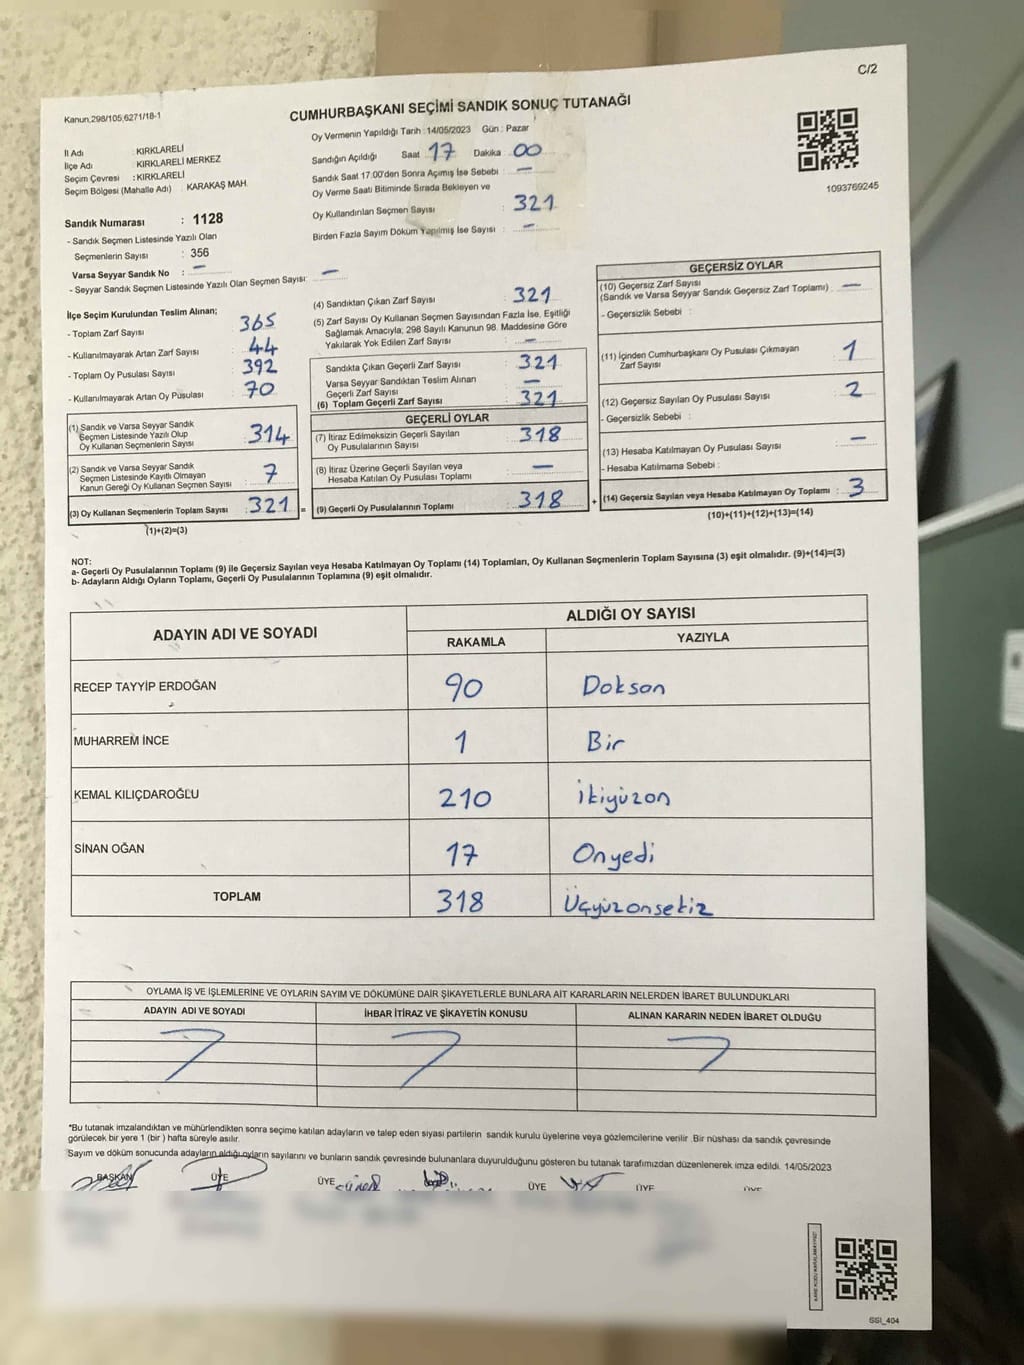 C/2
Kanun,298/105,6271/18-1
CUMHURBAŞKANI SEÇİMİ SANDIK SONUÇ TUTANAĞI
Oy Vermenin Yapıldığı Tarih : 14/05/2023 Gün : Pazar
İl Adı : KIRKLARELİ
İlçe Adı : KIRKLARELİ MERKEZ
Seçim Çevresi : KIRKLARELİ
Seçim Bölgesi (Mahalle Adı) : KARAKAŞ MAH.
Sandığın Açıldığı Saat 17 Dakika 00
Sandık Saat 17:00'den Sonra Açımış İse Sebebi : —
Oy Verme Saati Bitiminde Sırada Bekleyen ve
Oy Kullandırılan Seçmen Sayısı : 321
Birden Fazla Sayım Döküm Yapılmış İse Sayısı : —
1093769245
Sandık Numarası : 1128
- Sandık Seçmen Listesinde Yazılı Olan
Seçmenlerin Sayısı : 356
Varsa Seyyar Sandık No : —
- Seyyar Sandık Seçmen Listesinde Yazılı Olan Seçmen Sayısı: —
İlçe Seçim Kurulundan Teslim Alınan;
- Toplam Zarf Sayısı : 365
- Kullanılmayarak Artan Zarf Sayısı : 44
- Toplam Oy Pusulası Sayısı : 392
- Kullanılmayarak Artan Oy Pusulası : 70
(1) Sandık ve Varsa Seyyar Sandık
Seçmen Listesinde Yazılı Olup
Oy Kullanan Seçmenlerin Sayısı : 314
(2) Sandık ve Varsa Seyyar Sandık
Seçmen Listesinde Kayıtlı Olmayan
Kanun Gereği Oy Kullanan Seçmen Sayısı : 7
(3) Oy Kullanan Seçmenlerin Toplam Sayısı : 321 =
(1)+(2)=(3)
(4) Sandıktan Çıkan Zarf Sayısı : 321
(5) Zarf Sayısı Oy Kullanan Seçmen Sayısından Fazla İse, Eşitliği
Sağlamak Amacıyla; 298 Sayılı Kanunun 98. Maddesine Göre
Yakılarak Yok Edilen Zarf Sayısı : —
Sandıkta Çıkan Geçerli Zarf Sayısı : 321
Varsa Seyyar Sandıktan Teslim Alınan
Geçerli Zarf Sayısı : —
(6) Toplam Geçerli Zarf Sayısı : 321
GEÇERLİ OYLAR
(7) İtiraz Edilmeksizin Geçerli Sayılan
Oy Pusulalarının Sayısı : 318
(8) İtiraz Üzerine Geçerli Sayılan veya
Hesaba Katılan Oy Pusulası Toplamı : —
(9) Geçerli Oy Pusulalarının Toplamı : 318 +
GEÇERSİZ OYLAR
(10) Geçersiz Zarf Sayısı
(Sandık ve Varsa Seyyar Sandık Geçersiz Zarf Toplamı) : —
- Geçersizlik Sebebi :
(11) İçinden Cumhurbaşkanı Oy Pusulası Çıkmayan
Zarf Sayısı : 1
(12) Geçersiz Sayılan Oy Pusulası Sayısı : 2
- Geçersizlik Sebebi :
(13) Hesaba Katılmayan Oy Pusulası Sayısı : —
- Hesaba Katılmama Sebebi :
(14) Geçersiz Sayılan veya Hesaba Katılmayan Oy Toplamı : 3
(10)+(11)+(12)+(13)=(14)
NOT:
a- Geçerli Oy Pusulalarının Toplamı (9) ile Geçersiz Sayılan veya Hesaba Katılmayan Oy Toplamı (14) Toplamları, Oy Kullanan Seçmenlerin Toplam Sayısına (3) eşit olmalıdır. (9)+(14)=(3)
b- Adayların Aldığı Oyların Toplamı, Geçerli Oy Pusulalarının Toplamına (9) eşit olmalıdır.
ADAYIN ADI VE SOYADI
ALDIĞI OY SAYISI
RAKAMLA YAZIYLA
RECEP TAYYİP ERDOĞAN 90 Doksan
MUHARREM İNCE 1 Bir
KEMAL KILIÇDAROĞLU 210 İkiyüzon
SİNAN OĞAN 17 Onyedi
TOPLAM 318 Üçyüzonsekiz
OYLAMA İŞ VE İŞLEMLERİNE VE OYLARIN SAYIM VE DÖKÜMÜNE DAİR ŞİKAYETLERLE BUNLARA AİT KARARLARIN NELERDEN İBARET BULUNDUKLARI
ADAYIN ADI VE SOYADI İHBAR İTİRAZ VE ŞİKAYETİN KONUSU ALINAN KARARIN NEDEN İBARET OLDUĞU
*Bu tutanak imzalandıktan ve mühürlendikten sonra seçime katılan adayların ve talep eden siyasi partilerin sandık kurulu üyelerine veya gözlemcilerine verilir .Bir nüshası da sandık çevresinde
görülecek bir yere 1 (bir ) hafta süreyle asılır.
Sayım ve döküm sonucunda adayların aldığı oyların sayılarını ve bunların sandık çevresinde bulunanlara duyurulduğunu gösteren bu tutanak tarafımızdan düzenlenerek imza edildi. 14/05/2023
BAŞKAN ÜYE ÜYE ÜYE ÜYE
SSI_404